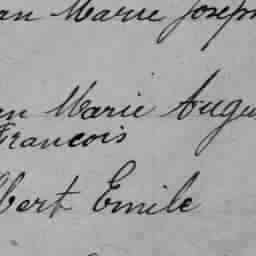 an Marie Joseph
an Marie Augu
Francois
lbert Emile